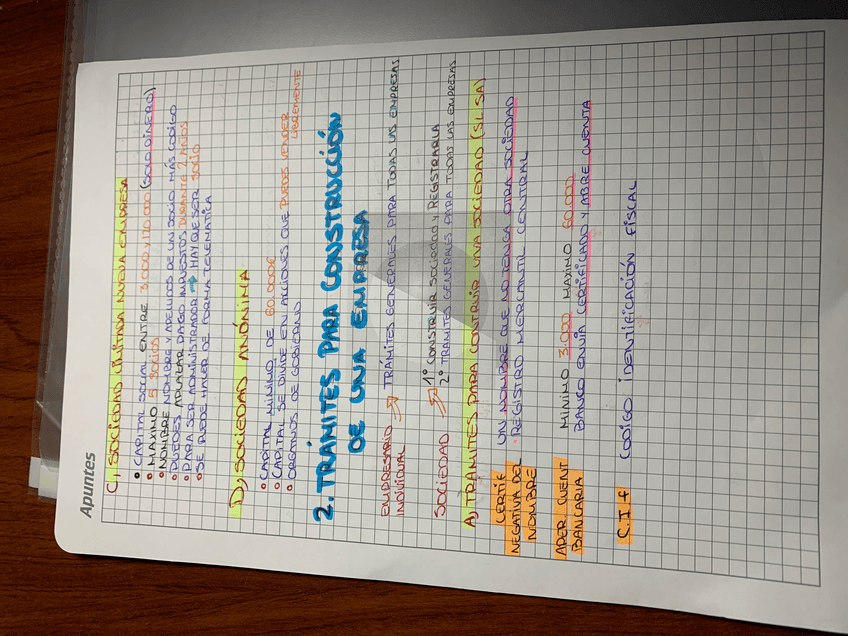 Apuntes
C) SOCIEDAD LIMITADA NUEVA EMPRESA
• CAPITAL SOCIAL ENTRE 3.000 Y 120.000 (SOLO DINERO)
• MAXIMO 5 SOCIOS
• NOMBRE NOMBRE Y APELLIDOS DE UN SOCIO MÁS CODIGO
• PUEDES APLAZAR PAGO IMPUESTOS DURANTE 2 AÑOS
• PARA SER ADMINISTRADOR → HAY QUE SER SOCIO
• SE PUEDE HAYER DE FORMA TELEMATICA
D) SOCIEDAD ANÓNIMA
• CAPITAL MÍNIMO DE 60.000€
• CAPITAL SE DIVIDE EN ACCIONES QUE PUEDES VENDER
LIBREMENTE
• ORGANOS DE GOBIERNO
2. TRÁMITES PARA CONSTRUCCIÓN
DE UNA EMPRESA
EMPRESARIO INDIVIDUAL → TRÁMITES GENERALES PARA TODAS LAS EMPRESAS
SOCIEDAD → 1º CONSTRUIR SOCIEDAD Y REGISTRARLA
2º TRAMITES GENERALES PARA TODAS LAS EMPRESAS
A) TRAMITES PARA CONTRUIR UNA SOCIEDAD (SL, SA)
CERTIF NEGATIVA DEL NOMBRE
UN NOMBRE QUE NO TENGA OTRA SOCIEDAD
• REGISTRO MERCANTIL CENTRAL
APER. CUENT BANCARIA
MINIMO 3.000 MAXIMO 60.000
BANCO ENVIA CERTIFICADO Y ABRE CUENTA
C.I.F CODIGO IDENTIFICACIÓN FISCAL